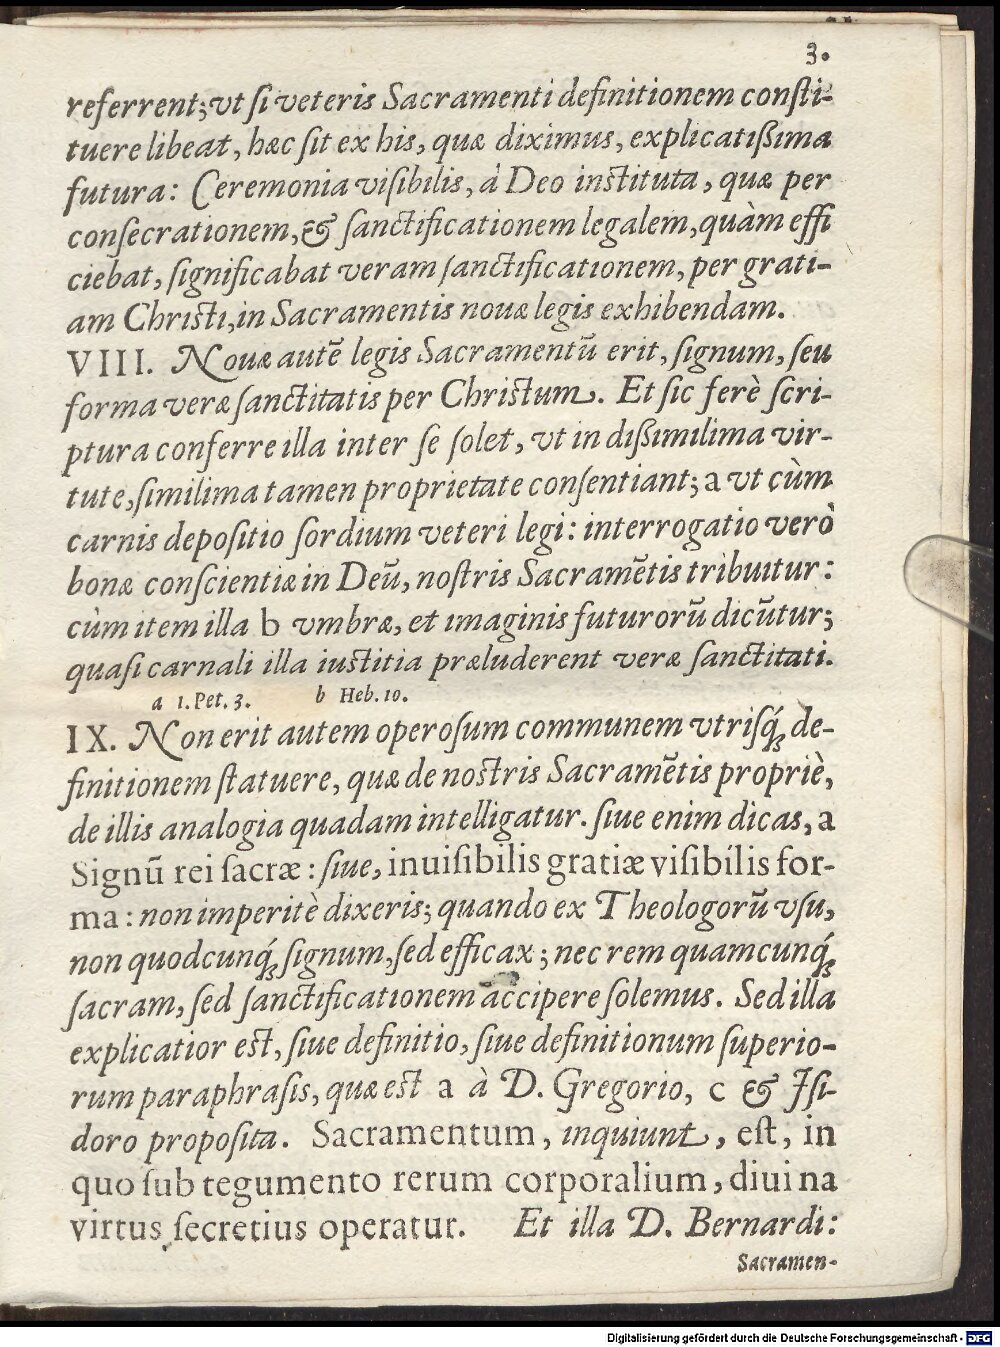 3.
referrent; vt ſi veteris Sacramenti definitionem conſti-
tuere libeat, hæc ſit ex his, quæ diximus, explicatißima
futura: Ceremonia viſibilis, à Deo inſtituta, quæ per
conſecrationem, & ſanctificationem legalem, quàm effi
ciebat, ſignificabat veram ſanctificationem, per grati-
am Chriſti, in Sacramentis nouæ legis exhibendam.
VIII. Nouæ autẽ legis Sacramentũ erit, ſignum, ſeu
forma veræ ſanctitatis per Chriſtum. Et ſic ferè ſcri-
ptura conferre illa inter ſe ſolet, vt in dißimilima vir-
tute, ſimilima tamen proprietate conſentiant; a vt cùm
carnis depoſitio ſordium veteri legi: interrogatio verò
bonæ conſcientiæ in Deũ, noſtris Sacramẽtis tribuitur:
cùm item illa b vmbræ, et imaginis futurorũ dicũtur;
quaſi carnali illa iuſtitia præluderent veræ ſanctitati.
a 1. Pet. 3. b Heb. 10.
IX. Non erit autem operoſum communem vtriſq́; de-
finitionem ſtatuere, quæ de noſtris Sacramẽtis propriè,
de illis analogia quadam intelligatur. ſiue enim dicas, a
Signũ rei ſacræ: ſiue, inuiſibilis gratiæ viſibilis for-
ma: non imperitè dixeris; quando ex Theologorũ vſu,
non quodcunq́; ſignum, ſed efficax; nec rem quamcunq́;
ſacram, ſed ſanctificationem accipere ſolemus. Sed illa
explicatior eſt, ſiue definitio, ſiue definitionum ſuperio-
rum paraphraſis, quæ eſt a à D. Gregorio, c & Iſi-
doro propoſita. Sacramentum, inquiunt, eſt, in
quo ſub tegumento rerum corporalium, diuina
virtus ſecretius operatur. Et illa D. Bernardi:
Sacramen-
Digitalisierung gefördert durch die Deutsche Forschungsgemeinschaft - DFG